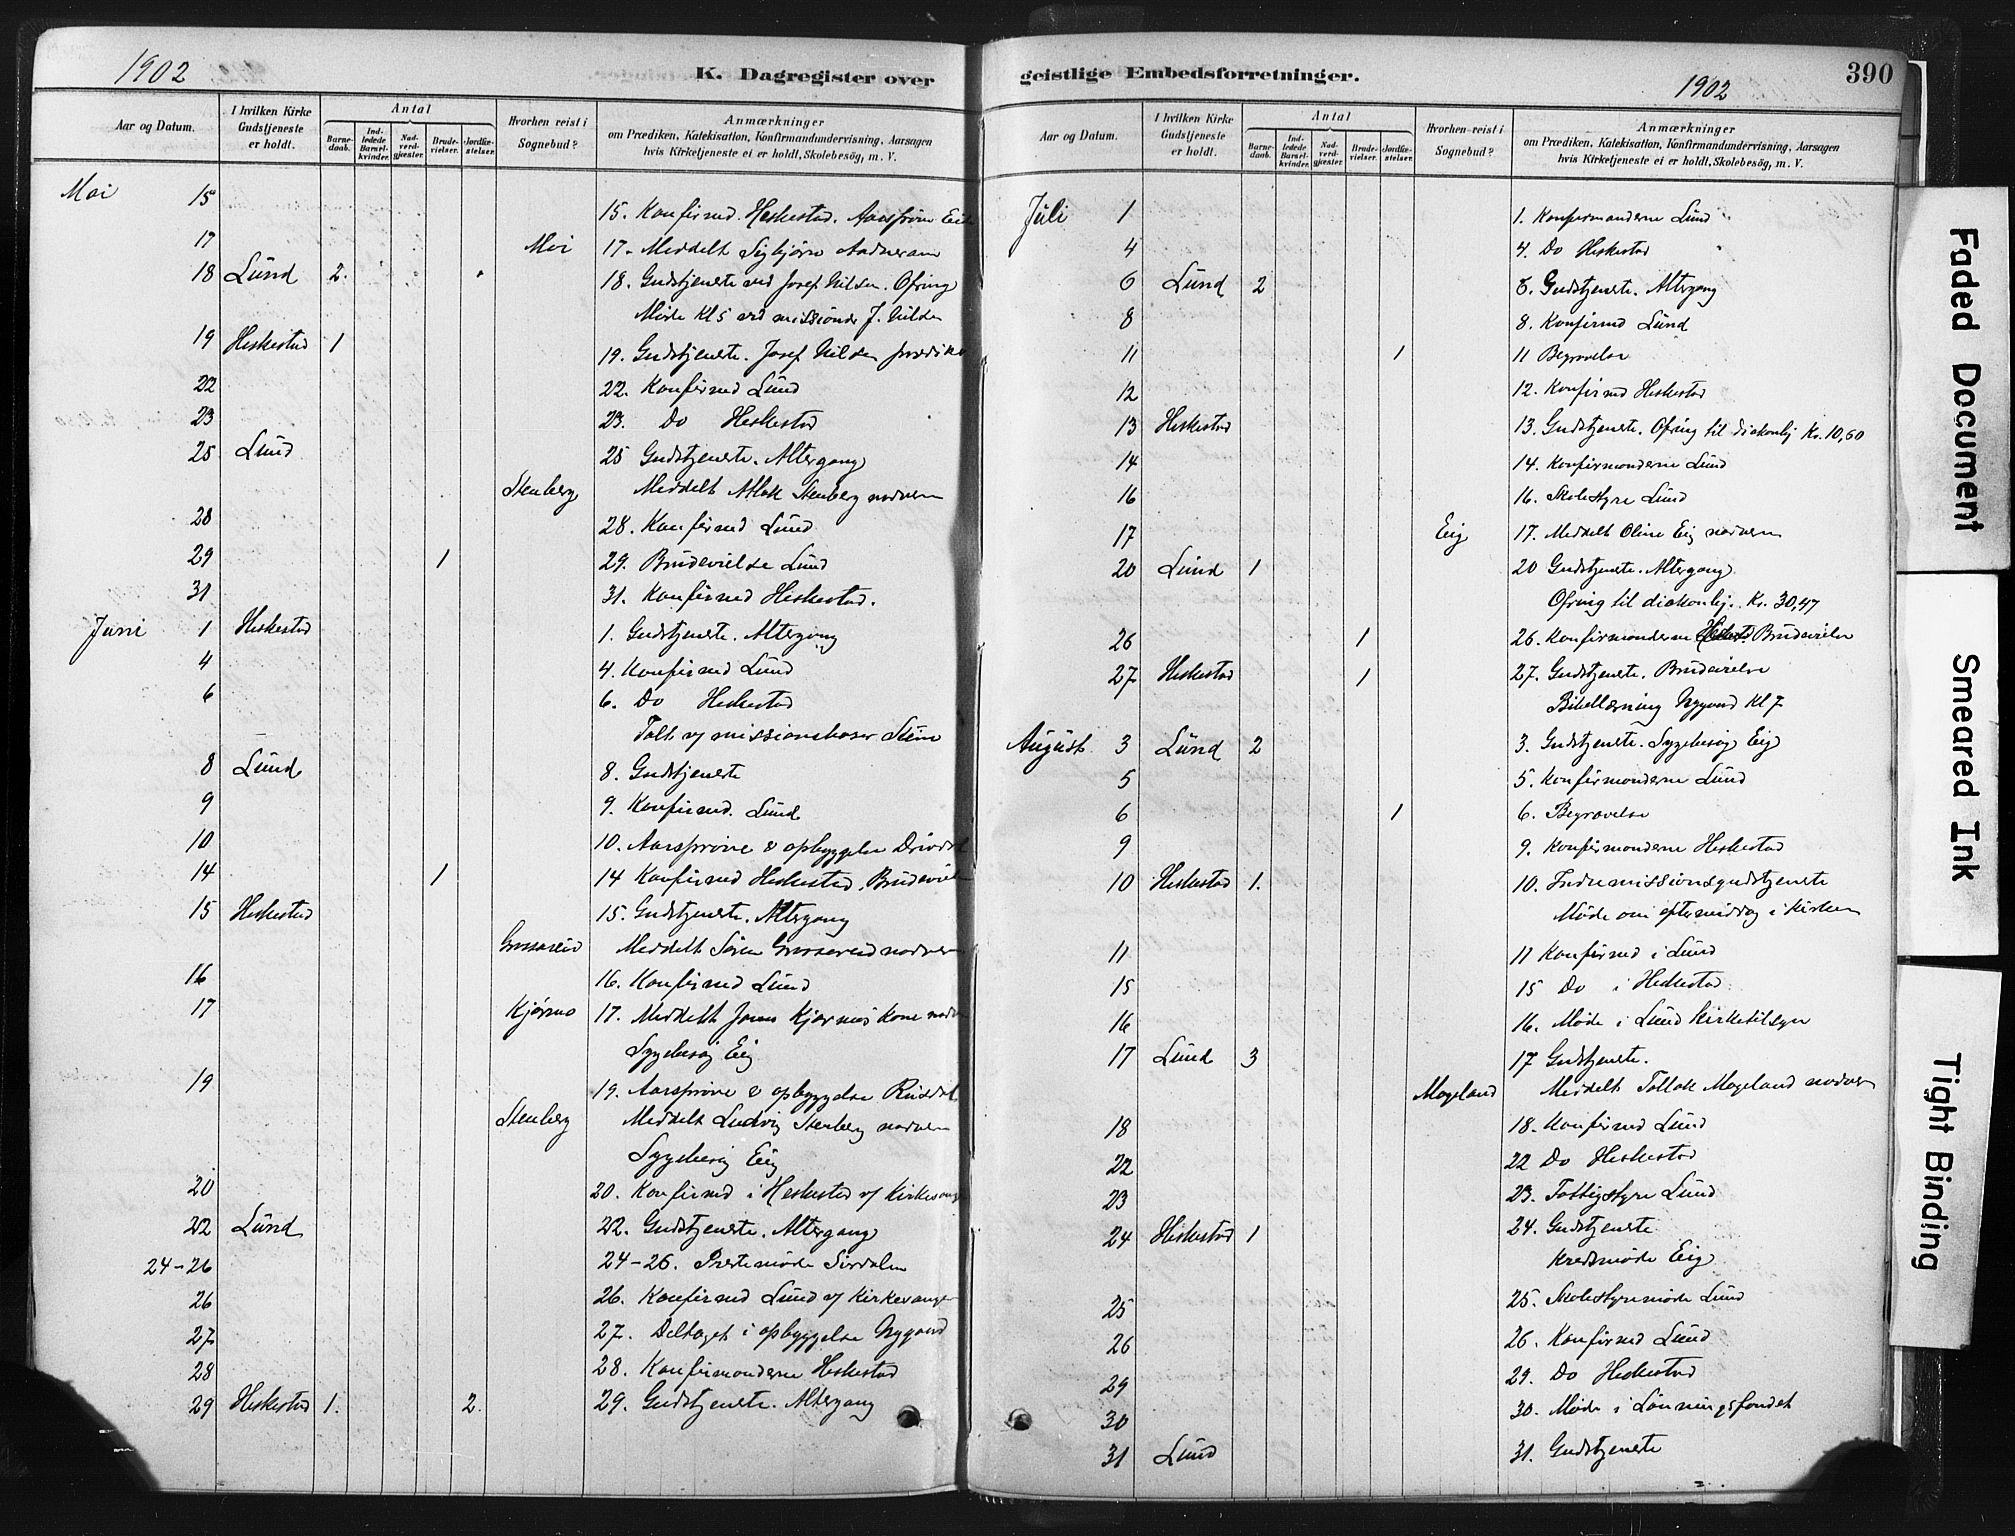 1902
K. Dagregister over
Aar og Datum.
I hvilken Kirke Gudstjeneste er holdt.
Antal
Barne-daab.
Ind-ledede Barsel-kvinder.
Nad-verd-gjester.
Brude-vielser.
Jordfæ-stelser.
Hvorhen reist i Sognebud?
Anmærkninger
om Prædiken, Katekisation, Konfirmandundervisning, Aarsagen
hvis Kirketjeneste ei er holdt, Skolebesøg, m. V.
Mai 15 15. Konfirmd. Heskestad. Aarsprøve Eide
17 Moi 17. Meddelt Sigbjørn
18 Lund 2. 18. Gudstjeneste ved Josef Nilsen. Ofring
Møde Kl 5 ved missionær J. Nilsen
19 Heskestad 1 19. Gudstjeneste. Josef Nilsen
22 22. Konfirmd Lund
23 23. Do Heskestad
25 Lund 25 Gudstjeneste. Altergang
Stenberg Meddelt Atlak Stenberg nadveren
28 28. Konfirmd Lund
29 1 29. Brudevielse Lund
31 31. Konfirmd Heskestad.
Juni 1 Heskestad 1. Gudstjeneste. Altergang
4 4. Konfirmd Lund
6 6. Do Heskestad
8 Lund 8. Gudstjeneste
9 9. Konfirmd. Lund
10 10. Aarsprøve & opbyggelse
14 1 14 Konfirmd Heskestad. Brudevielse
15 Heskestad 15. Gudstjeneste. Altergang
Grøsæreid Meddelt Søren Grøsæreid nadveren
16 16. Konfirmd Lund
17 Kjørmo 17. Meddelt Jonas Kjørmos kone
Sygebesøg Eig
19 19. Aarsprøve & opbyggelse Rusdal
Stenberg Meddelt Ludvig Stenberg nadveren
Sygebesøg Eig
20 20. Konfirmd i Heskestad
22 Lund 22. Gudstjeneste. Altergang
24-26 24-26. Prestemøde Sirdalen
26 26. Konfirmd Lund
27 27. Deltaget i opbyggelse Nygaard
28 28. Konfirmanderne Heskestad
29 Heskestad 1. 2. 29. Gudstjeneste. Altergang
geistlige Embedsforretninger.
1902
390
Aar og Datum.
I hvilken Kirke Gudstjeneste er holdt.
Antal
Barne-daab.
Ind-ledede Barsel-kvinder.
Nad-verd-gjester.
Brude-vielser.
Jordfæ-stelser.
Hvorhen reist i Sognebud?
Anmærkninger
om Prædiken, Katekisation, Konfirmandundervisning, Aarsagen
hvis Kirketjeneste ei er holdt, Skolebesøg, m. V.
Juli 1 1. Konfirmanderne Lund
4 4. Do Heskestad
6 Lund 2 6. Gudstjeneste. Altergang
8 8. Konfirmd Lund
11 1 11 Begravelse
12 12. Konfirmd Heskestad
13 Heskestad 13. Gudstjeneste. Ofring til diakonhj Kr. 10,60
14 14. Konfirmanderne Lund
16 16. Skolestyre Lund
17 Eig 17. Meddelt Oline Eig nadveren
20 Lund 1 20 Gudstjeneste. Altergang.
Ofring til diakonhj. Kr. 30,47
26 1 26. Konfirmanderne Heskestad Brudevielse
27 Heskestad 1 27. Gudstjeneste. Brudevielse
Bibellæsning Nygaard Kl 7
August 3 Lund 2 3. Gudstjeneste. Sygebesøg Eig
5 5. Konfirmanderne Lund
6 1 6. Begravelse
9 9. Konfirmanderne Heskestad
10 Heskestad 1. 10. Indremissionsgudstjeneste
Møde om eftermiddag i Kirken
11 11 Konfirmd i Lund
15 15 Do i Heskestad.
16 16. Møde i Lund Kirketilsyn
17 Lund 3 17 Gudstjeneste.
Mogeland Meddelt Tollak Mogeland nadveren
18 18. Konfirmd Lund
22 22 Do Heskestad
23 23. Fattigstyre Lund
24 Heskestad 1 24. Gudstjeneste
Kredsmøde Eig
25 25. Skolestyremøde Lund
26 26. Konfirmd Lund
29 29. Do Heskestad
30 30. Møde i Lønningsfondet
31 Lund 31. Gudstjeneste
Faded Document
Smeared Ink
Tight Binding